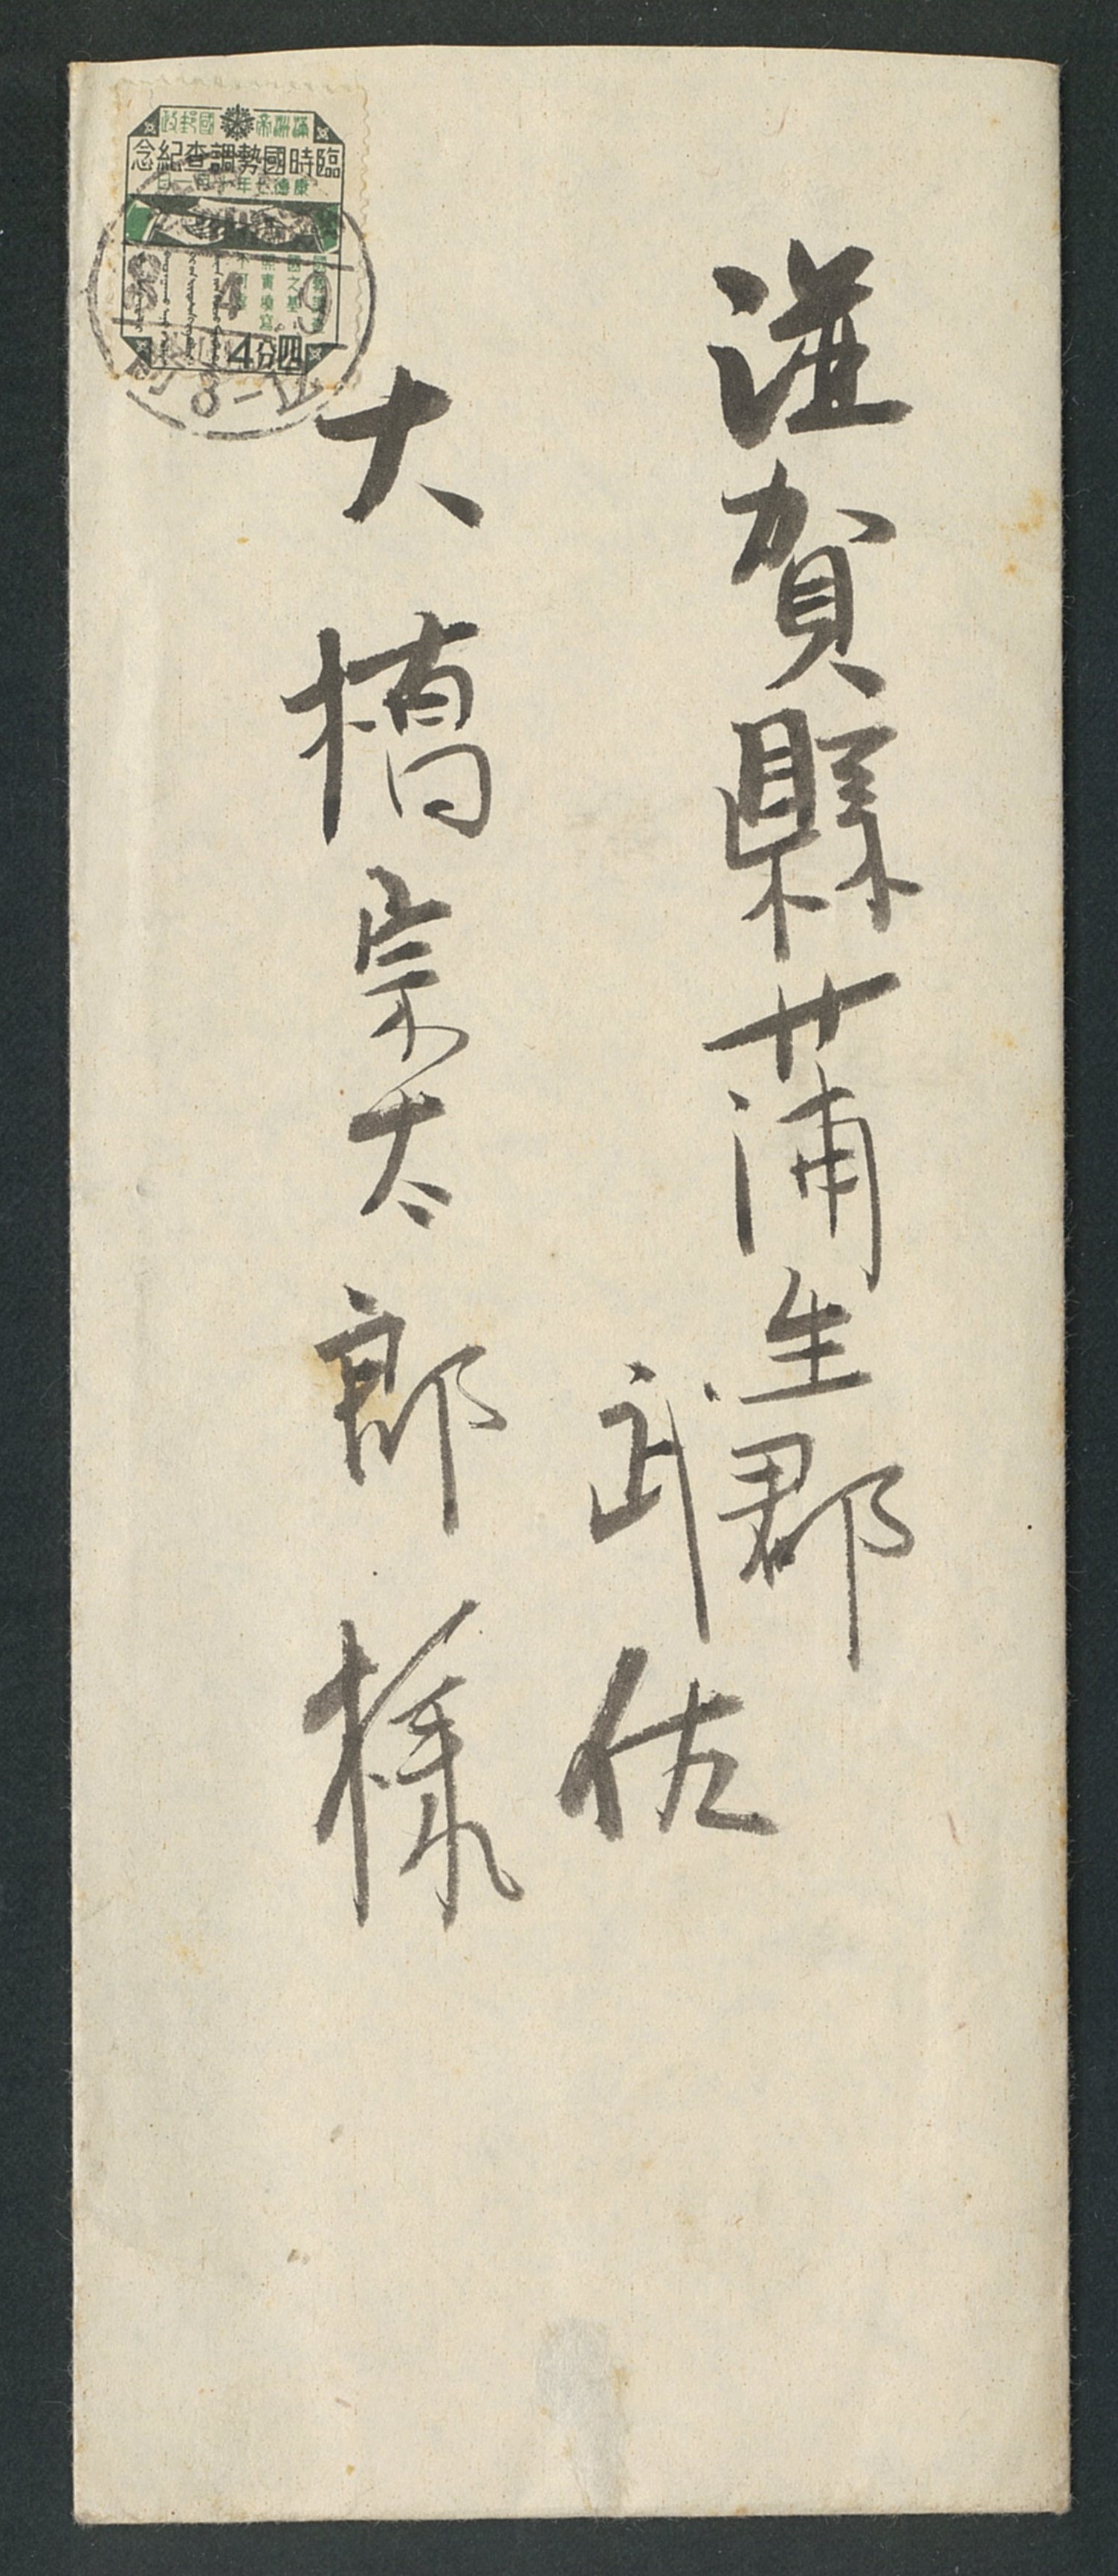 滋賀縣蒲生郡
武佐
大橋宗太郎様
滿洲帝國郵政
臨時國勢調査紀念
康德七年十月一日
四分
4
8 4 9
8-12